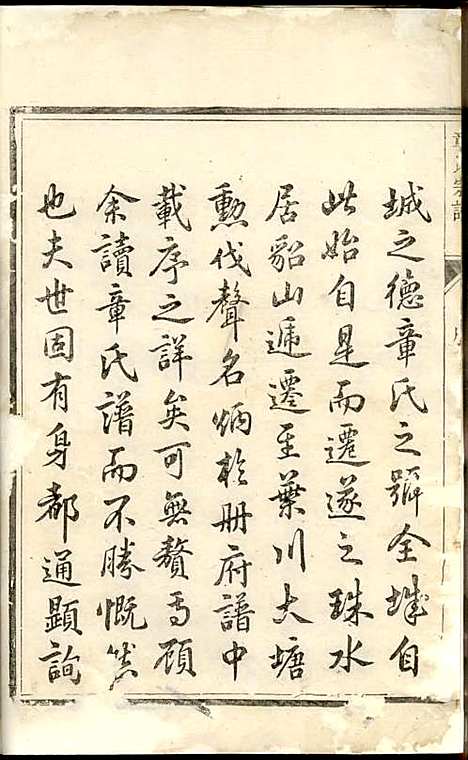 城之德章氏之號全城自
此始自是而遷遂之珠水
居貂山遞遷至葉川大塘
勳伐聲名炳於册府譜中
載序之詳矣可無贅焉顧
余讀章氏譜而不勝慨然
也夫世固有身都通顯詢
章氏宗譜